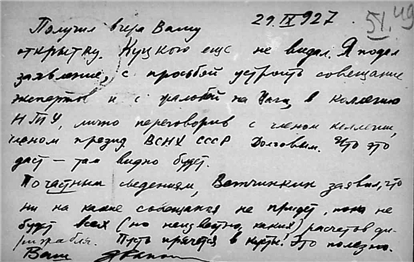 29.IX 927.
51. 49
Получил вчера Вашу
открытку. Куцкого еще не видал. Я подал
заявление, с просьбой устроить совещание
экспертов и с жалобой на Цаги, в коллегию
НТУ, лично переговорив с членом коллегии,
членом презид ВСНХ СССР Долговым. Что это
даст – там видно будет.
По частным сведениям, Ветчинкин заявил, что
ни на какие совещания не придет, пока не
будет всех (но неизвестно каких) расчетов ди-
рижабля. Пусть прячется в кусты. Это полезно.
Ваш